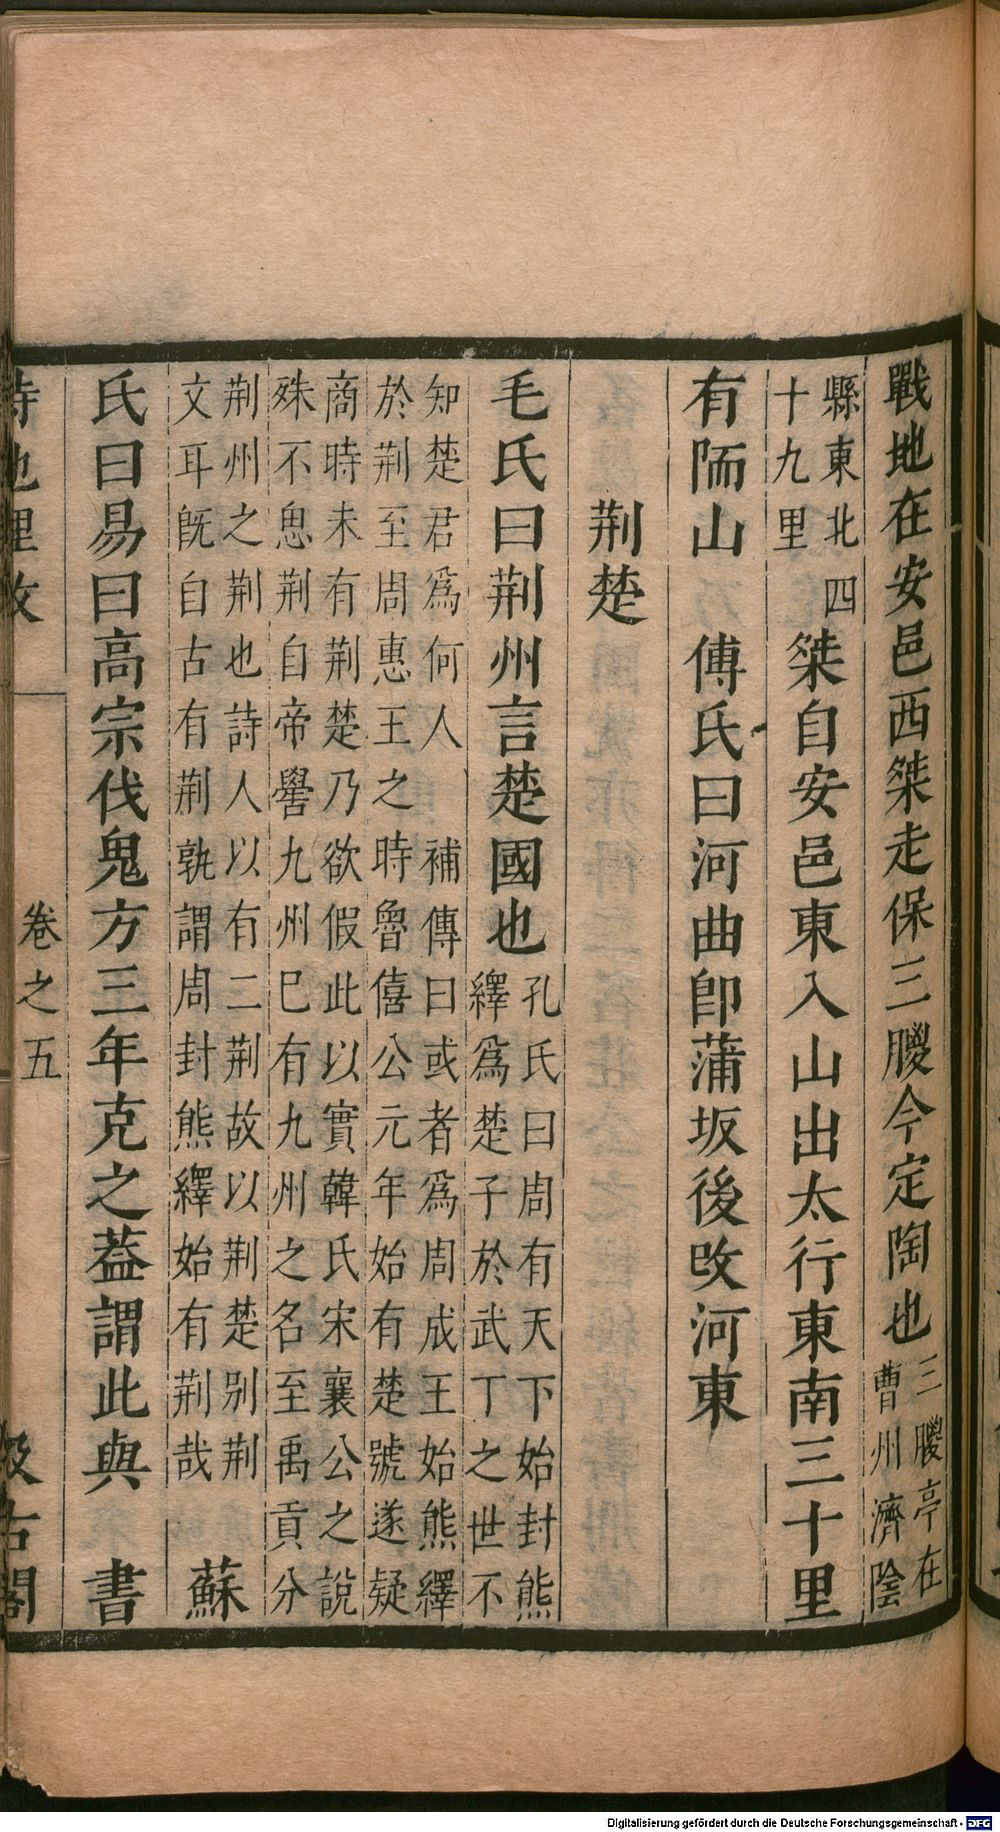 戰地在安邑西桀走保三朡今定陶也三朡亭在曹州濟陰
縣東北四十九里桀自安邑東入山出太行東南三十里
有陑山　傅氏曰河曲卽蒲坂後改河東
荆楚
毛氏曰荆州言楚國也孔氏曰周有天下始封熊繹爲楚子於武丁之世不
知楚君爲何人　補傳曰或者爲周成王始熊繹於荆至周惠王之時魯僖公元年始有楚號遂疑
商時未有荆楚乃欲假此以實韓氏宋襄公之說殊不思荆自帝嚳九州巳有九州之名至禹貢分
荆州之荆也詩人以有二荆故以荆楚别荆文耳旣自古有荆孰謂周封熊繹始有荆哉　蘇
氏曰易曰高宗伐鬼方三年克之葢謂此與　書
詩地理攷　卷之五　汲古閣
Digitalisierung gefördert durch die Deutsche Forschungsgemeinschaft - DFG